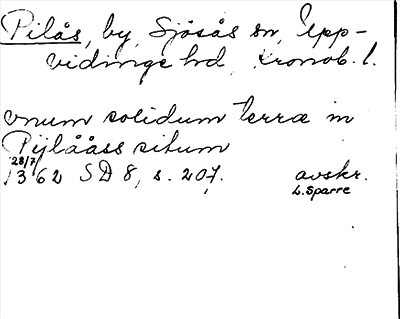 Pilås, by, Sjösås sn, Upp-
vidinge hd, Kronob. l.
unum solidum terræ in
Pijlååss situm
28/7
1362 SD 8, s. 207. avskr.
L. Sparre